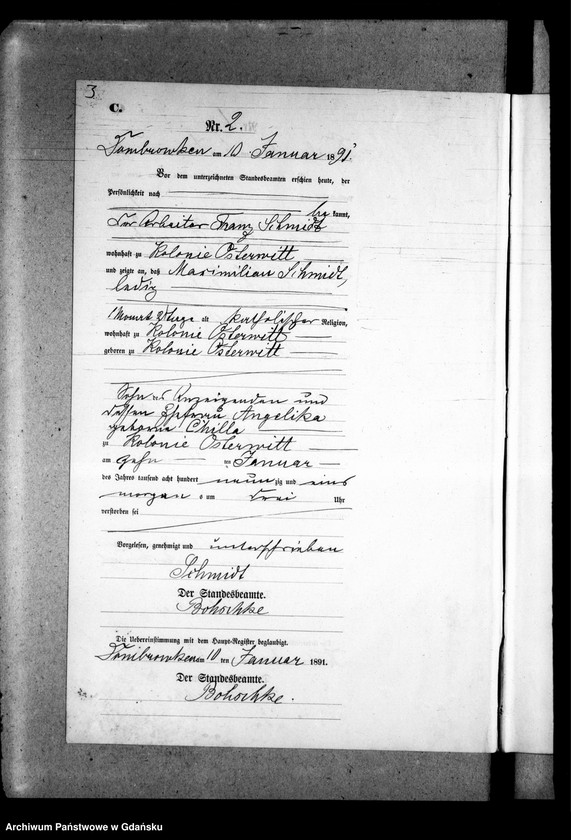 3
C.
Nr. 2.
Dombrowken am 10 Januar 1891
Vor dem unterzeichneten Standesbeamten erschien heute, der
Persönlichkeit nach
be kannt,
der Arbeiter Franz Schmidt
wohnhaft zu Kolonie Osterwitt
und zeigte an, daß Maximilian Schmidt,
ledig
1 Monat Tage alt katholischer Religion,
wohnhaft zu Kolonie Osterwitt
geboren zu Kolonie Osterwitt
Sohn des Anzeigenden und
dessen Ehefrau Angelika
geborne Chilla
zu Kolonie Osterwitt
am zehn ten Januar
des Jahres tausend acht hundert neunzig und eins
morgen s um drei Uhr
verstorben sei
Vorgelesen, genehmigt und unterschrieben
Schmidt
Der Standesbeamte.
Bohschke
Die Uebereinstimmung mit dem Haupt-Register beglaubigt.
Dombrowken am 10 ten Januar 1891.
Der Standesbeamte.
Bohschke.
Archiwum Państwowe w Gdańsku